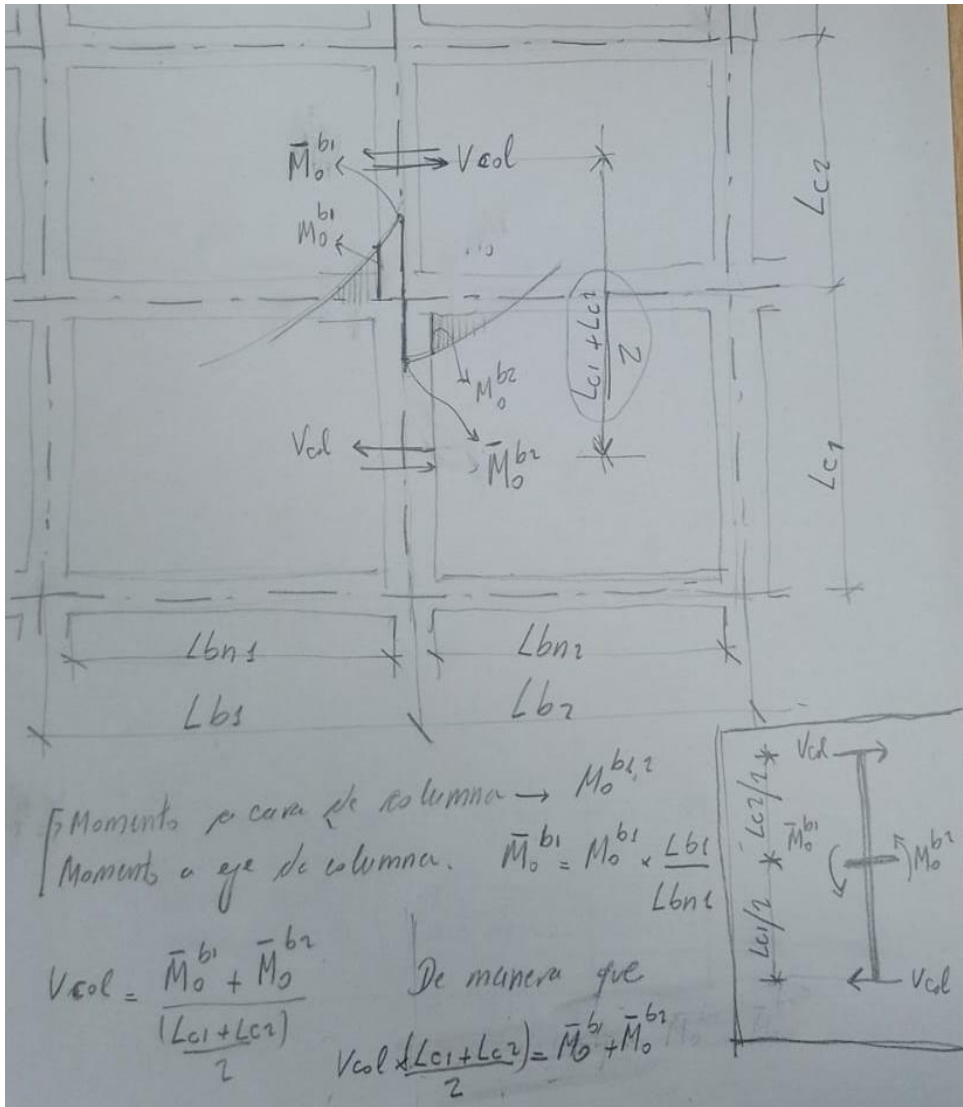 M̄₀ᵇ¹
Vcol
M₀ᵇ¹
Lc2
Lc1 + Lc2
2
M₀ᵇ²
Vcol
M̄₀ᵇ²
Lc1
Lbn1
Lbn2
Lb1
Lb2
Momento a cara de columna → M₀ᵇ¹,²
Momento a eje de columna. M̄₀ᵇ¹ = M₀ᵇ¹ × Lb1
Lbn1
Vcol = M̄₀ᵇ¹ + M̄₀ᵇ²
(Lc1 + Lc2)
2
De manera que
Vcol × (Lc1 + Lc2) = M̄₀ᵇ¹ + M̄₀ᵇ²
2
Vcol
Lc2/2
M̄₀ᵇ¹
M̄₀ᵇ²
Lc1/2
Vcol